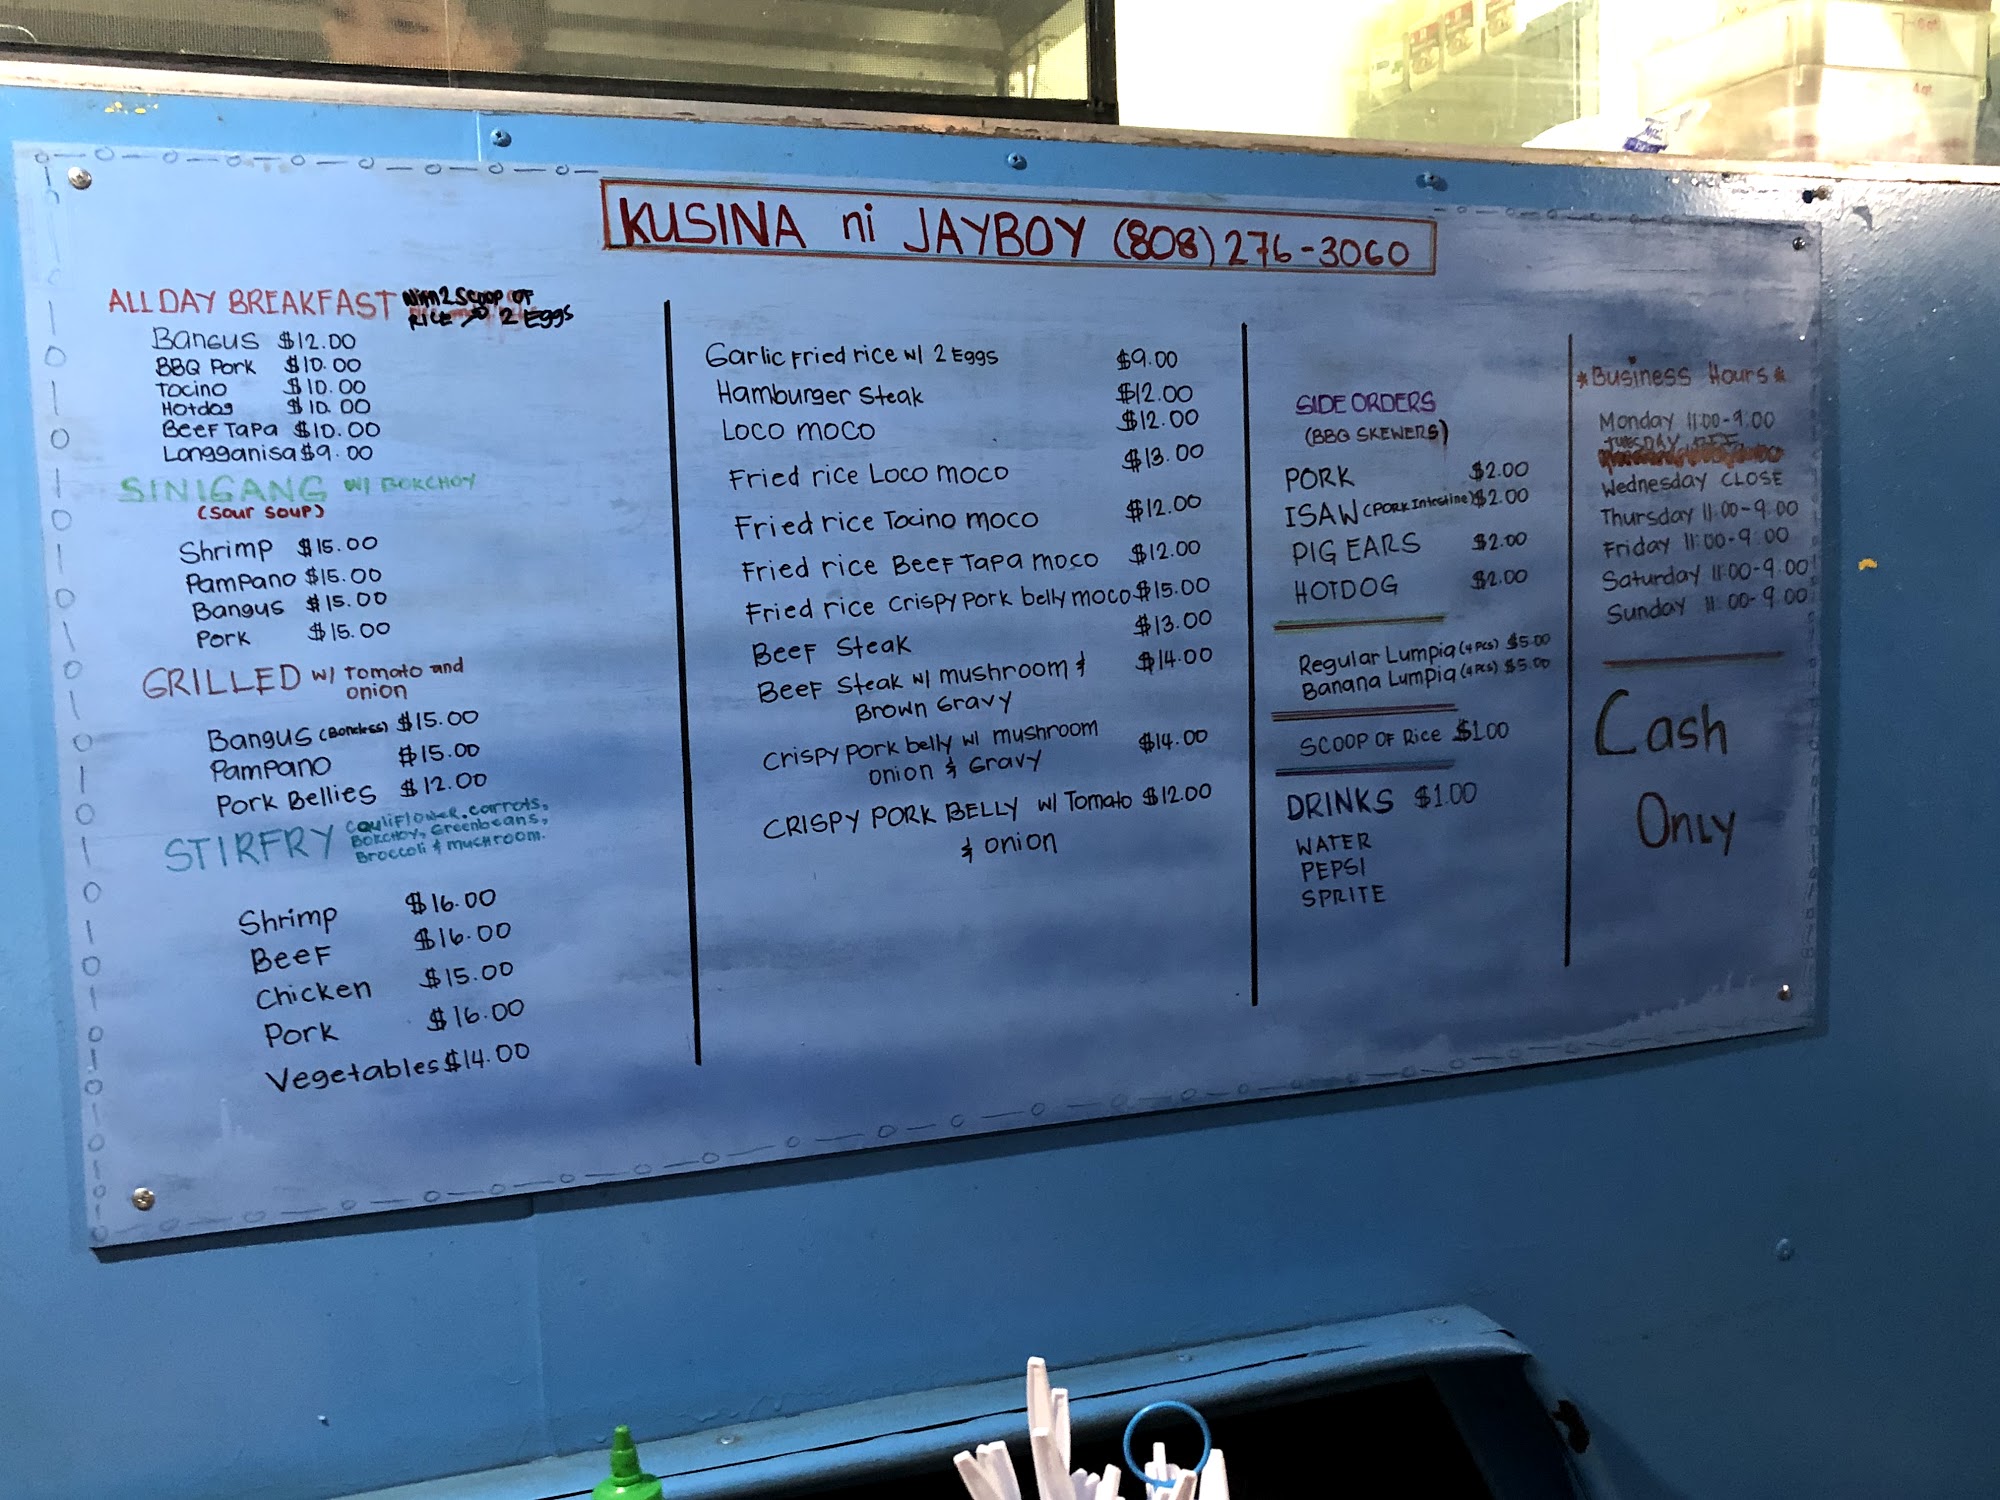 KUSINA ni JAYBOY (808) 276-3060
ALL DAY BREAKFAST With 2 SCOOP OF
RICE 2 Eggs
BANGUS $12.00
BBQ Pork $10.00
Tocino $10.00
Hotdog $10.00
BEEF TAPA $10.00
Longganisa $9.00
SINIGANG w/ BOKCHOY
(SOUR SOUP)
Shrimp $15.00
PAMPANO $15.00
Bangus $15.00
Pork $15.00
GRILLED w/ Tomato and
onion
Bangus (Boneless) $15.00
PAMPANO $15.00
Pork Bellies $12.00
STIRFRY Cauliflower, carrots,
BOKCHOY, Greenbeans,
Broccoli & mushroom.
Shrimp $16.00
BEEF $16.00
Chicken $15.00
Pork $16.00
Vegetables $14.00
Garlic Fried rice w/ 2 Eggs $9.00
Hamburger Steak $12.00
LOCO MOCO $12.00
Fried rice Loco moco $13.00
Fried rice Tocino moco $12.00
Fried rice BEEF TAPA moco $12.00
Fried rice Crispy pork belly moco $15.00
BEEF Steak $13.00
BEEF Steak w/ mushroom & $14.00
Brown Gravy
Crispy pork belly w/ mushroom $14.00
onion & Gravy
CRISPY PORK BELLY w/ Tomato $12.00
& onion
SIDE ORDERS
(BBQ SKEWERS)
PORK $2.00
ISAW (PORK Intestine) $2.00
PIG EARS $2.00
HOTDOG $2.00
Regular Lumpia (4 PCS) $5.00
Banana Lumpia (4 PCS) $5.00
SCOOP OF Rice $1.00
DRINKS $1.00
WATER
PEPSI
SPRITE
*Business Hours*
Monday 11:00-9:00
TUESDAY
Wednesday CLOSE
Thursday 11:00-9:00
Friday 11:00-9:00
Saturday 11:00-9:00
Sunday 11:00-9:00
Cash
Only